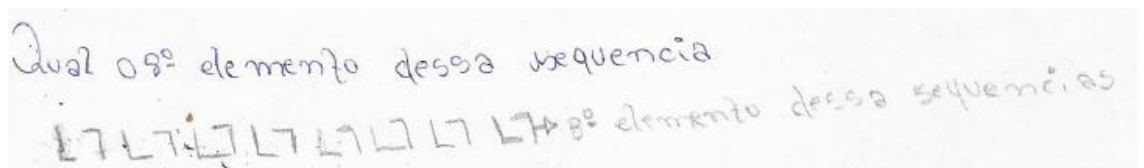 Qual o 8º elemento dessa sequencia
L7 L7 L7 L7 L7 L7 L7 L7 → 8º elemento dessa sequencias